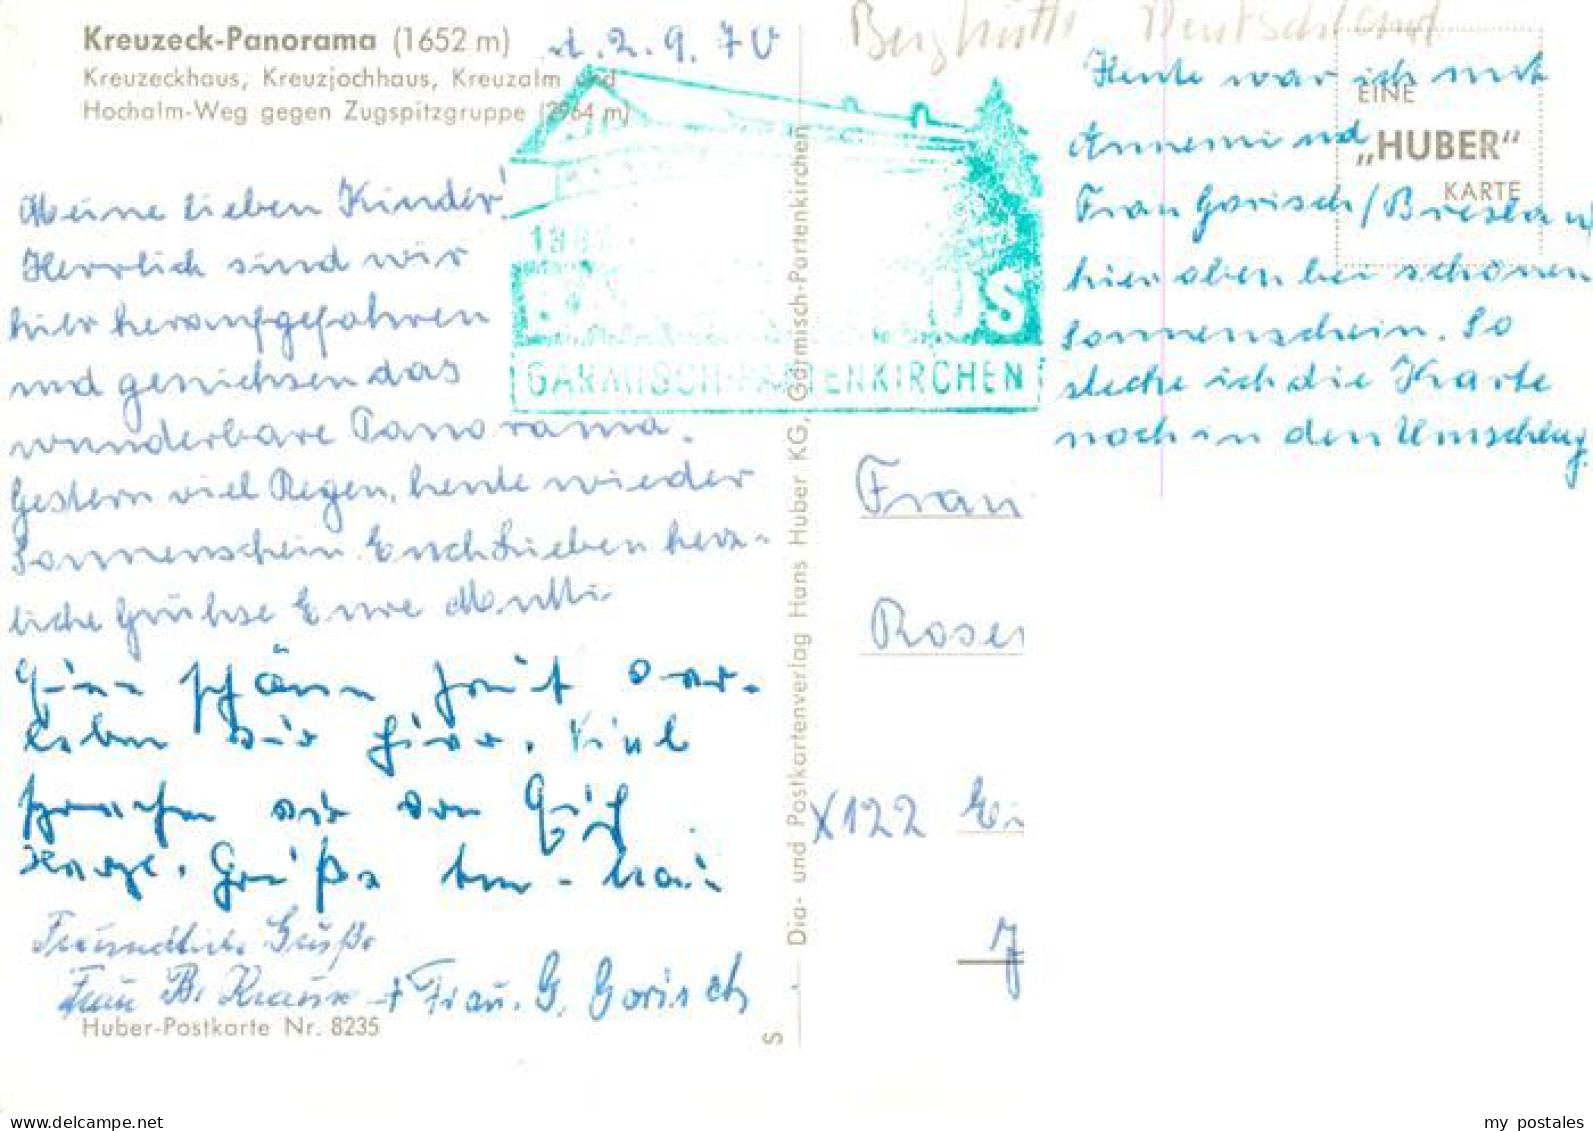 Kreuzeck-Panorama (1652 m)
Kreuzeckhaus, Kreuzjochhaus, Kreuzalm und
Hochalm-Weg gegen Zugspitzgruppe (2964 m)
d. 2. 9. 70
Meine lieben Kinder!
Herrlich sind wir
hier heraufgefahren
und geniehsen das
wunderbare Panorama.
Gestern viel Regen, heute wieder
Sonnenschein. Euch Lieben herz-
liche Grühse Eure Mutti
Einen schönen Zeit ver-
leben wir hier. Viel
sprachen wir von
Grüße
Freundliche Grüße
Frau B. Krause + Frau. G. Gorisch
Huber-Postkarte Nr. 8235
GARMISCH-PARTENKIRCHEN
Dia- und Postkartenverlag Hans Huber KG, Garmisch-Partenkirchen
S
Berghütte Deutschland
EINE
„HUBER“
KARTE
Heute war ich mit
Annemi und
Frau Gorisch/Breslau
hier oben bei schönen
Sonnenschein. So
stecke ich die Karte
noch in den Umschlag
Frau
Rosen
X122 Ei
J
my postales